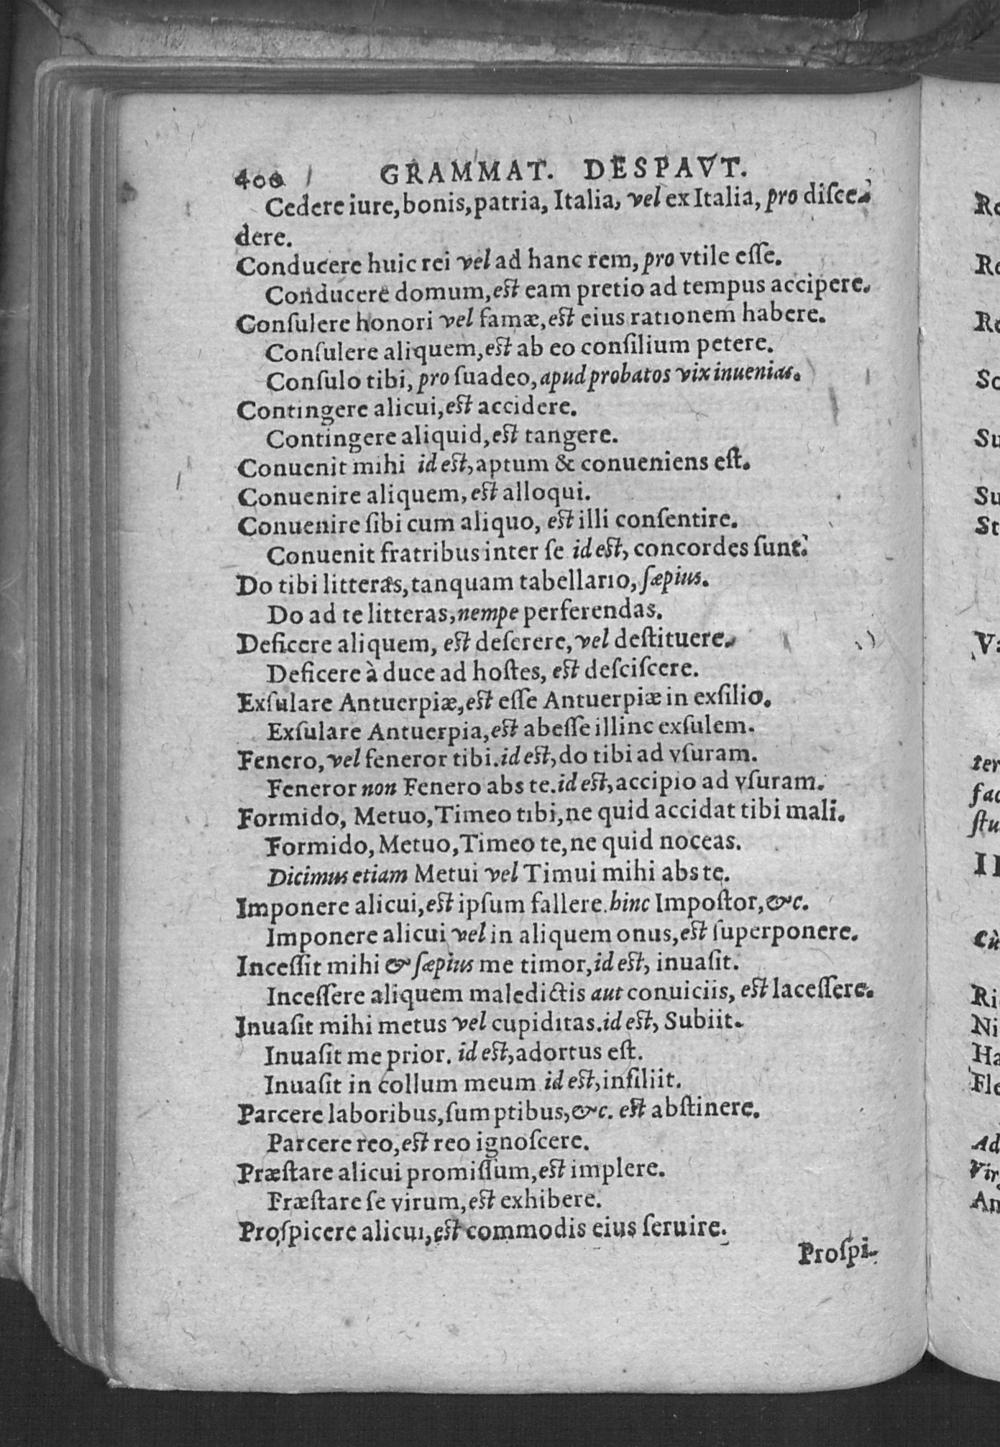 400 GRAMMAT. DESPAVT.
Cedere iure, bonis, patria, Italia, vel ex Italia, pro disce-
dere.
Conducere huic rei vel ad hanc rem, pro vtile esse.
Conducere domum, est eam pretio ad tempus accipere.
Consulere honori vel famæ, est eius rationem habere.
Consulere aliquem, est ab eo consilium petere.
Consulo tibi, pro suadeo, apud probatos vix inuenias.
Contingere alicui, est accidere.
Contingere aliquid, est tangere.
Conuenit mihi id est, aptum & conueniens est.
Conuenire aliquem, est alloqui.
Conuenire sibi cum aliquo, est illi consentire.
Conuenit fratribus inter se id est, concordes sunt.
Do tibi litteras, tanquam tabellario, sæpius.
Do ad te litteras, nempe perferendas.
Deficere aliquem, est deserere, vel destituere.
Deficere à duce ad hostes, est desciscere.
Exsulare Antuerpiæ, est esse Antuerpiæ in exsilio.
Exsulare Antuerpia, est abesse illinc exsulem.
Fenero, vel feneror tibi. id est, do tibi ad vsuram.
Feneror non Fenero abs te. id est, accipio ad vsuram.
Formido, Metuo, Timeo tibi, ne quid accidat tibi mali.
Formido, Metuo, Timeo te, ne quid noceas.
Dicimus etiam Metui vel Timui mihi abs te.
Imponere alicui, est ipsum fallere. hinc Impostor, &c.
Imponere alicui vel in aliquem onus, est superponere.
Incessit mihi & sæpius me timor, id est, inuasit.
Incessere aliquem maledictis aut conuiciis, est lacessere.
Inuasit mihi metus vel cupiditas. id est, Subiit.
Inuasit me prior. id est, adortus est.
Inuasit in collum meum id est, insiliit.
Parcere laboribus, sumptibus, &c. est abstinere.
Parcere reo, est reo ignoscere.
Præstare alicui promissum, est implere.
Præstare se virum, est exhibere.
Prospicere alicui, est commodis eius seruire.
Prospi-
Re
Re
Re
Sc
Su
Su
St
Va
ter
fac
stu
Cù
Ri
Ni
Ha
Fle
Ad
Vir
An